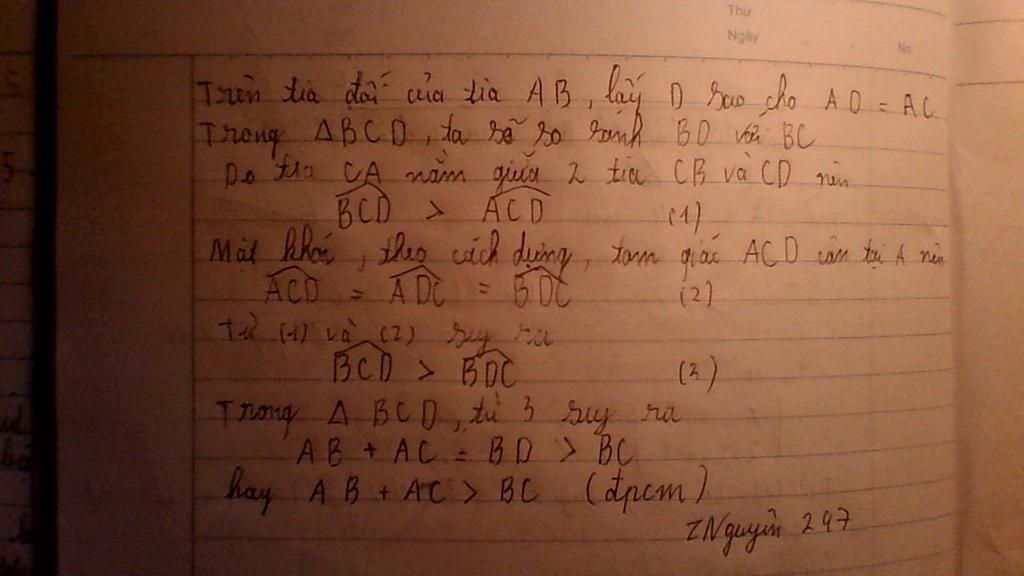 Thứ
Ngày
No
Trên tia đối của tia AB, lấy D sao cho AD = AC
Trong ΔBCD, ta sẽ so sánh BD với BC
Do tia CA nằm giữa 2 tia CB và CD nên
\widehat{BCD} > \widehat{ACD} (1)
Mặt khác, theo cách dựng, tam giác ACD cân tại A nên
\widehat{ACD} = \widehat{ADC} = \widehat{BDC} (2)
Từ (1) và (2) suy ra
\widehat{BCD} > \widehat{BDC} (3)
Trong Δ BCD, từ 3 suy ra
AB + AC = BD > BC
hay AB + AC > BC (đpcm)
ZNguyên 297